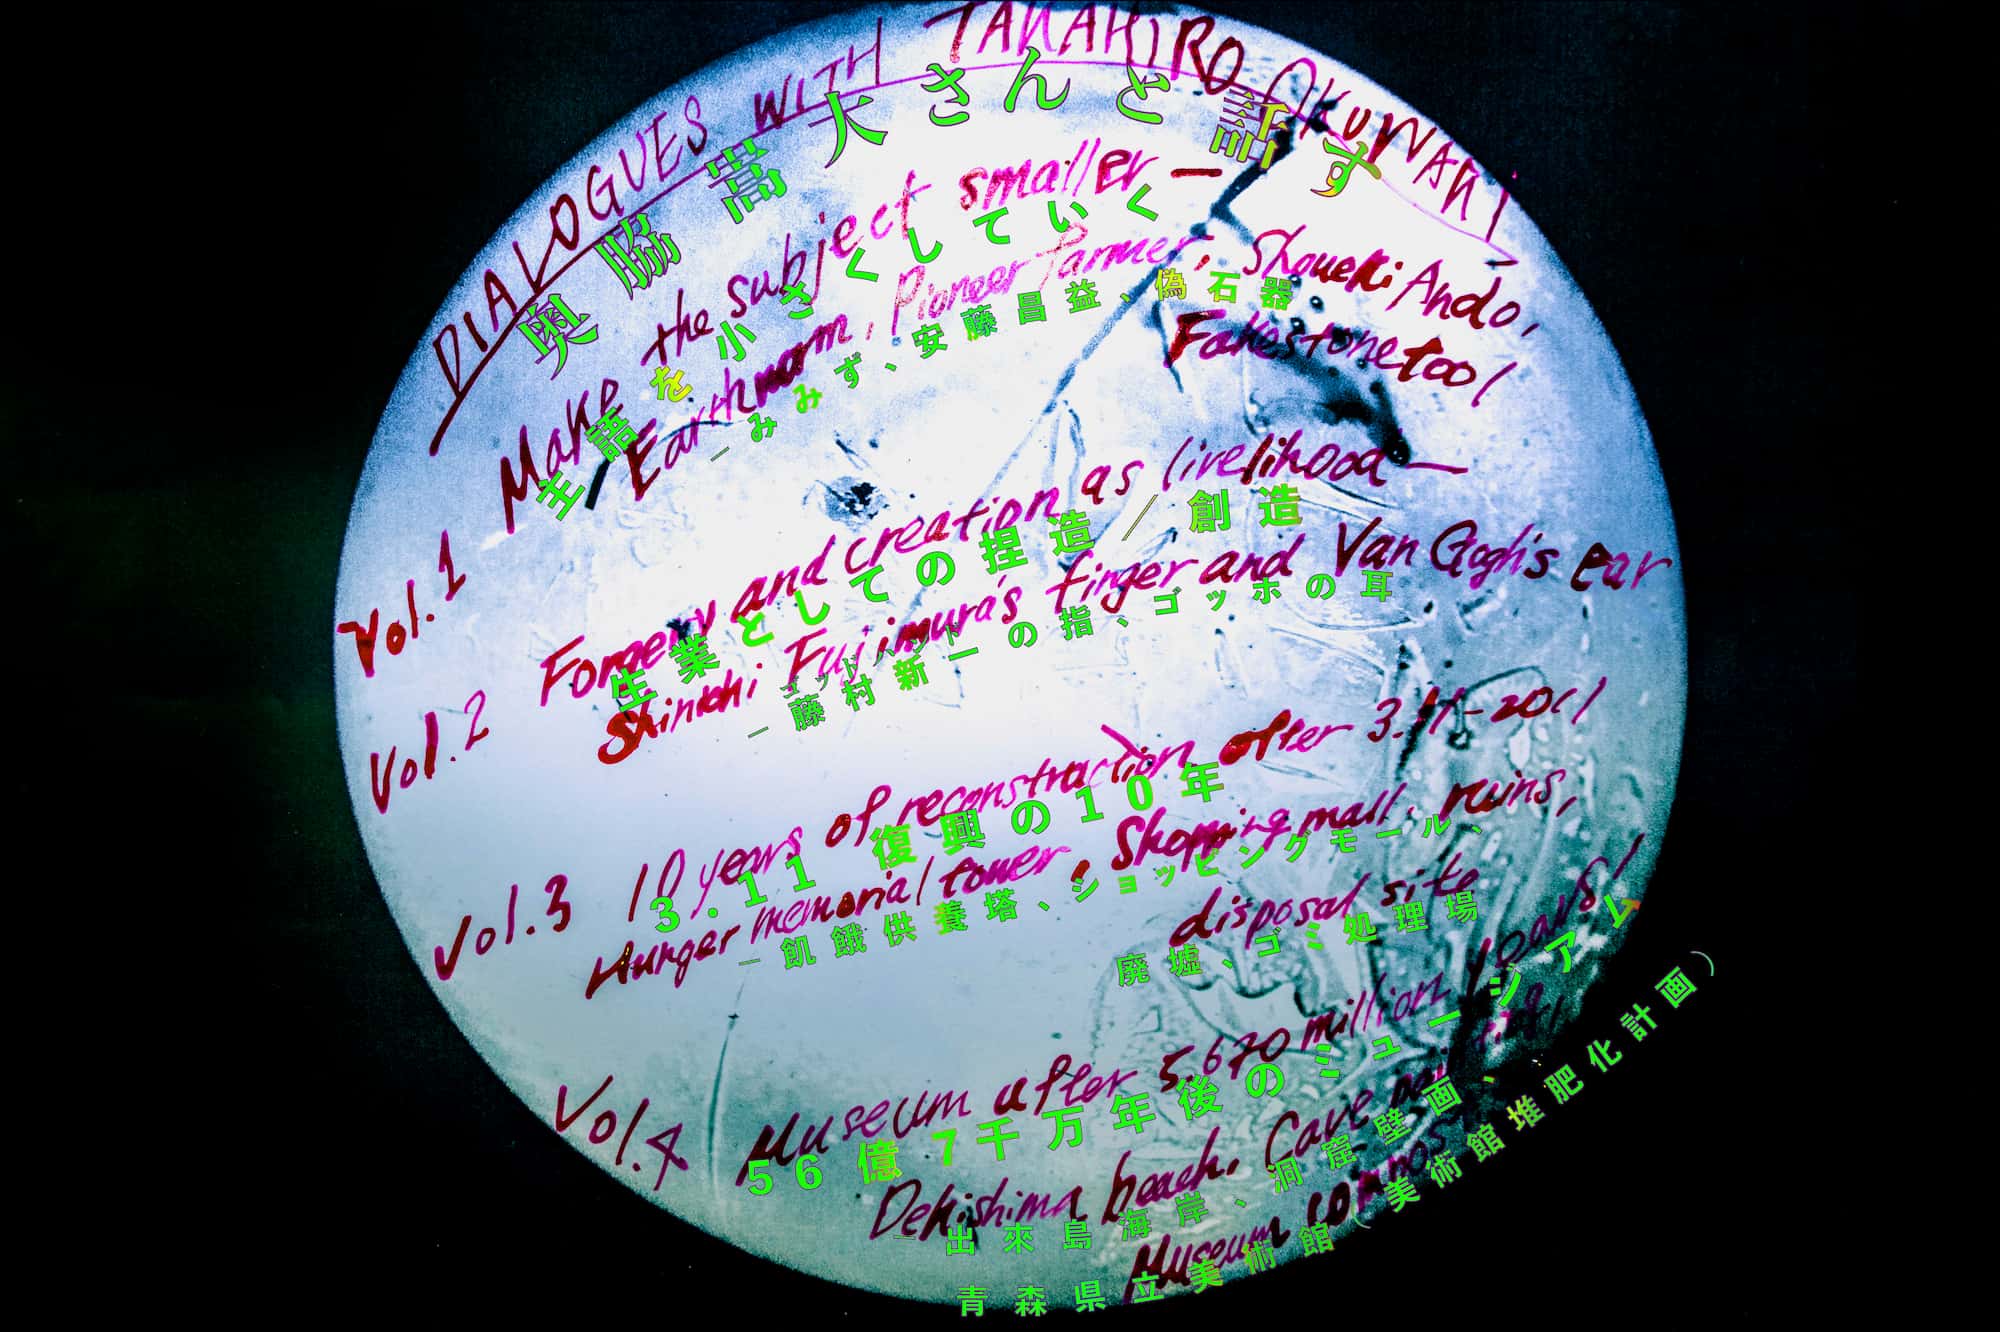 DIALOGUES WITH TAKAHIRO OKUWAKI
奥脇嵩大さんと話す
Vol.1 Make the subject smaller —
主語を小さくしていく
Earthworm, Pioneer farmer, Shoueki Ando,
Fakestonetool
—みみず、安藤昌益、偽石器
Vol.2 Forgery and creation as livelihood —
生業としての捏造／創造
Shinichi Fujimura's finger and Van Gogh's ear
ゴッドハンド
—藤村新一の指、ゴッホの耳
Vol.3 10 years of reconstruction after 3.11-2011
3.11 復興の10年
Hunger memorial tower, Shopping mall, ruins,
disposal site
—飢餓供養塔、ショッピングモール、
廃墟、ゴミ処理場
Vol.4 Museum after 5.670 million years,
56億7千万年後のミュージアム
Dekishima beach, Cave painting,
—出來島海岸、洞窟壁画、
Museum compost
青森県立美術館（美術館堆肥化計画）